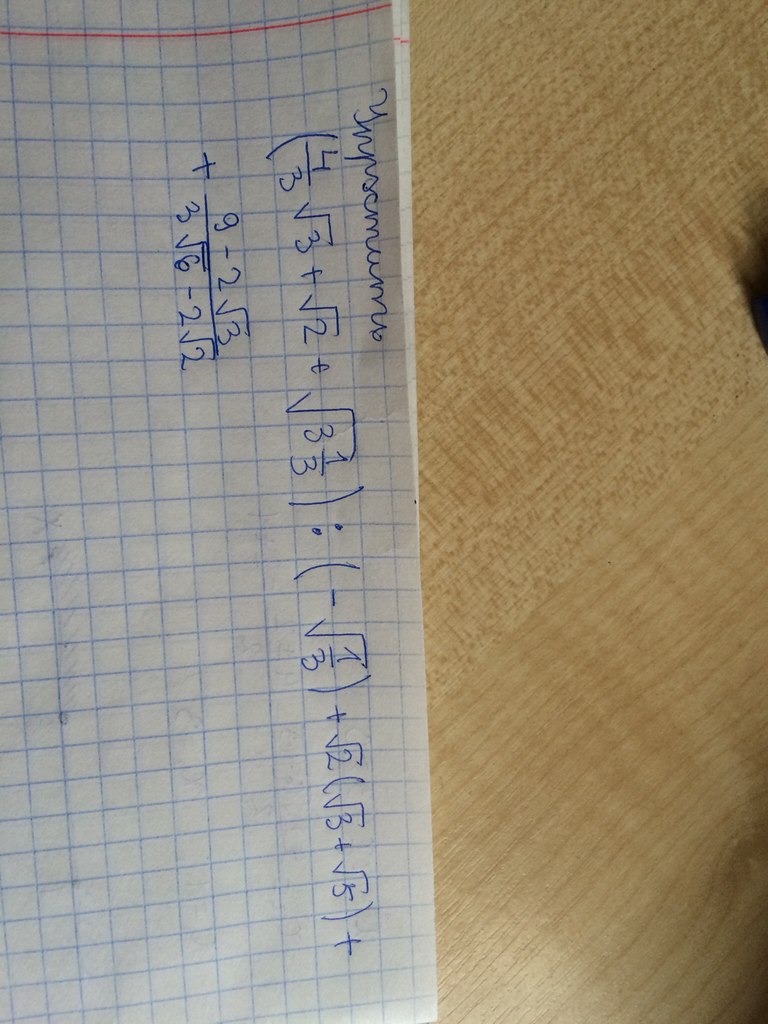 Упростить
(4/3 √3 + √2 + √(3 1/3)) : (-√(1/3)) + √2(√3 + √5) +
+ (9 - 2√3)/(3√6 - 2√2)